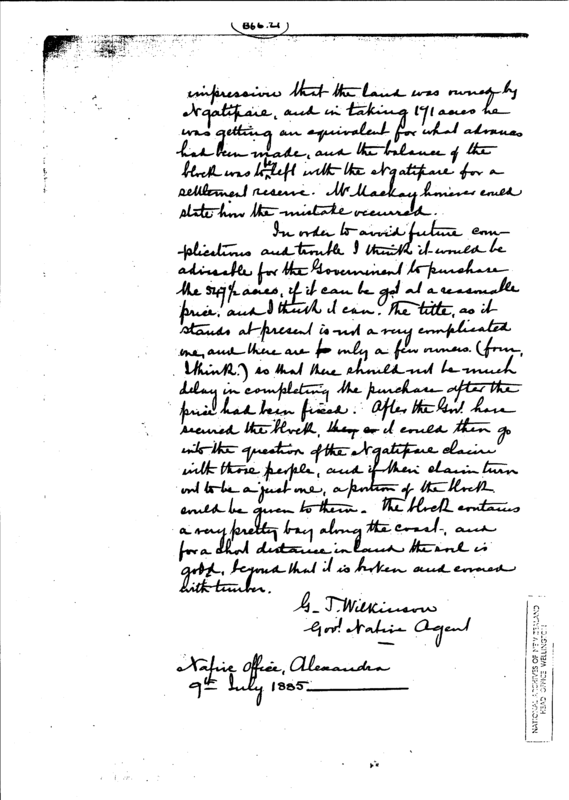 B66.21
impression that the land was owned by
Ngatipare, and in taking 191 acres he
was getting an equivalent for what advances
had been made, and the balance of the
block was to be left with the Ngatipare for a
settlement reserve. Mr Mackay however could
state how the mistake occurred.
In order to avoid future com-
plications and trouble I think it would be
adviseable for the Government to purchase
the acres, if it can be got at a reasonable
price, and I think it can. The title, as it
stands at present is not a very complicated
one, and there are only a few owners. (four,
I think.) so that there should not be much
delay in completing the purchase after the
price had been fixed. After the Govt. have
secured the block, it could then go
into the question of the Ngatipare claim
with those people, and if their claim turn
out to be a just one, a portion of the block
could be given to them. The block contains
a very pretty bay along the coast, and
for a short distance inland the soil is
good, beyond that it is broken and covered
with timber.
G. T. Wilkinson
Govt. Native Agent
Native Office, Alexandra
9th July 1885
NATIONAL ARCHIVES OF NEW ZEALAND
HEAD OFFICE WELLINGTON